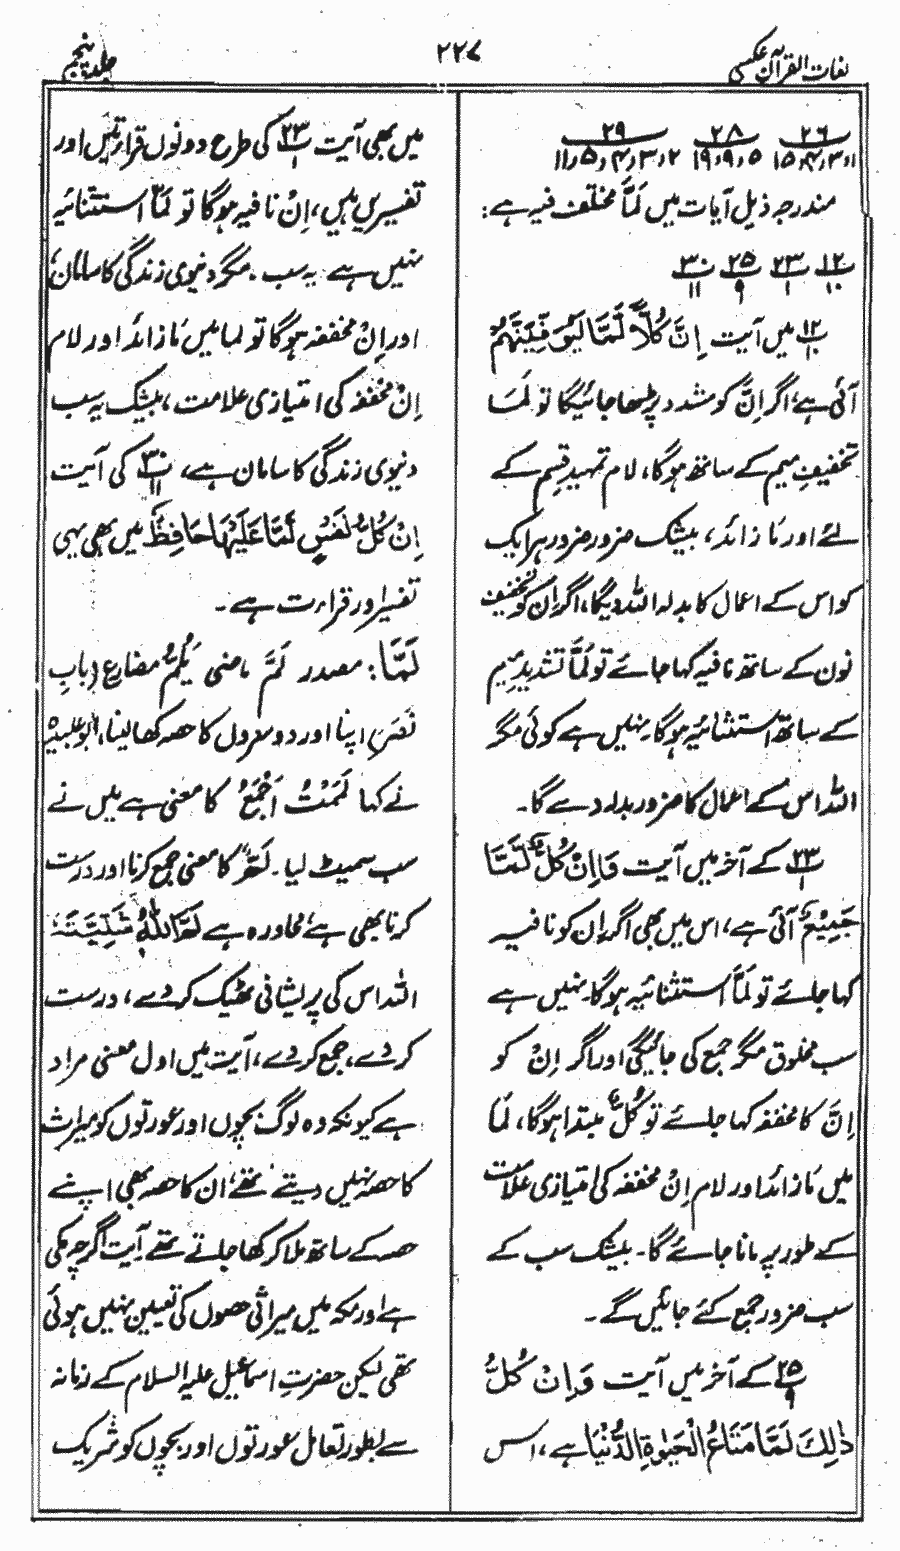 لغات القرآن عکسی
۲۲۷
جلد پنجم
۲۶ ۲۸ ۲۹
مندرجہ ذیل آیات میں لَمَّا مختلف فیہ ہے:
۱۲/۱۰ ۲۳/۱ ۲۵/۹ ۳۰/۱۱
۱۲/۱۰ میں آیت اِنَّ كُلًّا لَّمَّا لَيُوَفِّيَنَّهُمْ
آئی ہے، اگر اِنَّ کو مشدد پڑھا جائیگا تو لَمَا
تخفیفِ میم کے ساتھ ہوگا، لام تمہیدِ قسم کے
لئے اور مَا زائد، بیشک ضرور ضرور ہر ایک
کو اس کے اعمال کا بدلہ اللہ دیگا، اگر اِن کو تخفیف
نون کے ساتھ نافیہ کہا جائے تو لَمَّا تشدیدِ میم
کے ساتھ استثنائیہ ہوگا۔ نہیں ہے کوئی مگر
اللہ اس کے اعمال کا ضرور بدلہ دے گا۔
۲۳/۱ کے آخر میں آیت وَاِنْ كُلٌّ لَّمَّا
جَمِيْعٌ آئی ہے، اس میں بھی اگر اِن کو نافیہ
کہا جائے تو لَمَّا استثنائیہ ہوگا۔ نہیں ہے
سب مخلوق مگر جمع کی جائیگی اور اگر اِنْ کو
اِنَّ کا مخففہ کہا جائے تو كُلٌّ مبتدا ہوگا، لَمَا
میں مَا زائد اور لام اِنْ مخففہ کی امتیازی علامت
کے طور پر مانا جائے گا۔ بیشک سب کے
سب ضرور جمع کئے جائیں گے۔
۲۵/۹ کے آخر میں آیت وَاِنْ كُلُّ
ذٰلِكَ لَمَّا مَتَاعُ الْحَيٰوةِ الدُّنْيَا ہے، اس
میں بھی آیت ۲۳/۱ کی طرح دونوں قراءتیں اور
تفسیریں ہیں، اِنْ نافیہ ہوگا تو لَمَّا استثنائیہ
نہیں ہے یہ سب۔ مگر دنیوی زندگی کا سامان،
اور اِنْ مخففہ ہوگا تو لما میں مَا زائد اور لام
اِنْ مخففہ کی امتیازی علامت، بیشک یہ سب
دنیوی زندگی کا سامان ہے، ۳۰/۱۱ کی آیت
اِنْ كُلُّ نَفْسٍ لَّمَّا عَلَيْهَا حَافِظٌ میں بھی یہی
تفسیر اور قراءت ہے۔
لَمًّا: مصدر لَمَّ ماضی يَلُمُّ مضارع (بابِ
نَصَرَ) اپنا اور دوسروں کا حصہ کھا لینا، ابو عبیدہ
نے کہا لَمَمْتُ اَجْمَعُ کا معنی ہے میں نے
سب سمیٹ لیا۔ لَمٌّ کا معنی جمع کرنا اور درست
کرنا بھی ہے، محاورہ ہے لَمَّ اللهُ
اللہ اس کی پریشانی ٹھیک کر دے، درست
کر دے، جمع کر دے، آیت میں اول معنی مراد
ہے کیونکہ وہ لوگ بچوں اور عورتوں کو میراث
کا حصہ نہیں دیتے تھے، ان کا حصہ بھی اپنے
حصہ کے ساتھ ملا کر کھا جاتے تھے آیت اگرچہ مکی
ہے اور مکہ میں میراثی حصوں کی تعیین نہیں ہوئی
تھی لیکن حضرتِ اسماعیل علیہ السلام کے زمانہ
سے بطور تعامل عورتوں اور بچوں کو شریک